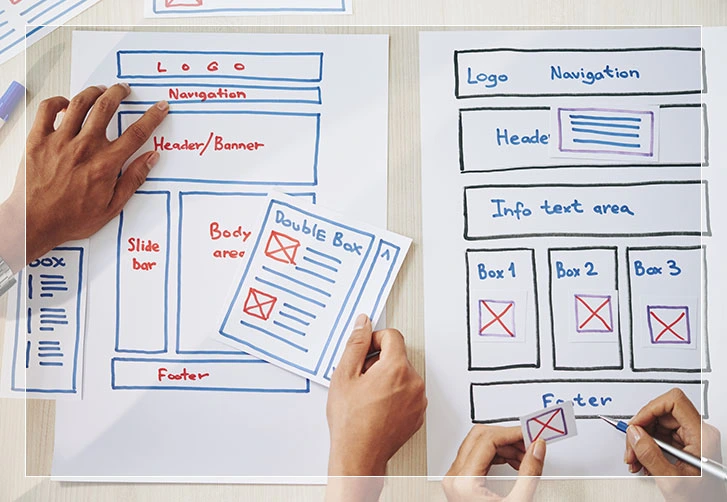 LOGO
Navigation
Header/Banner
Slide
bar
Body
area
Footer
BOX
DoublE Box
Logo Navigation
Heade
Info text area
Box 1 Box 2 Box 3
Footer